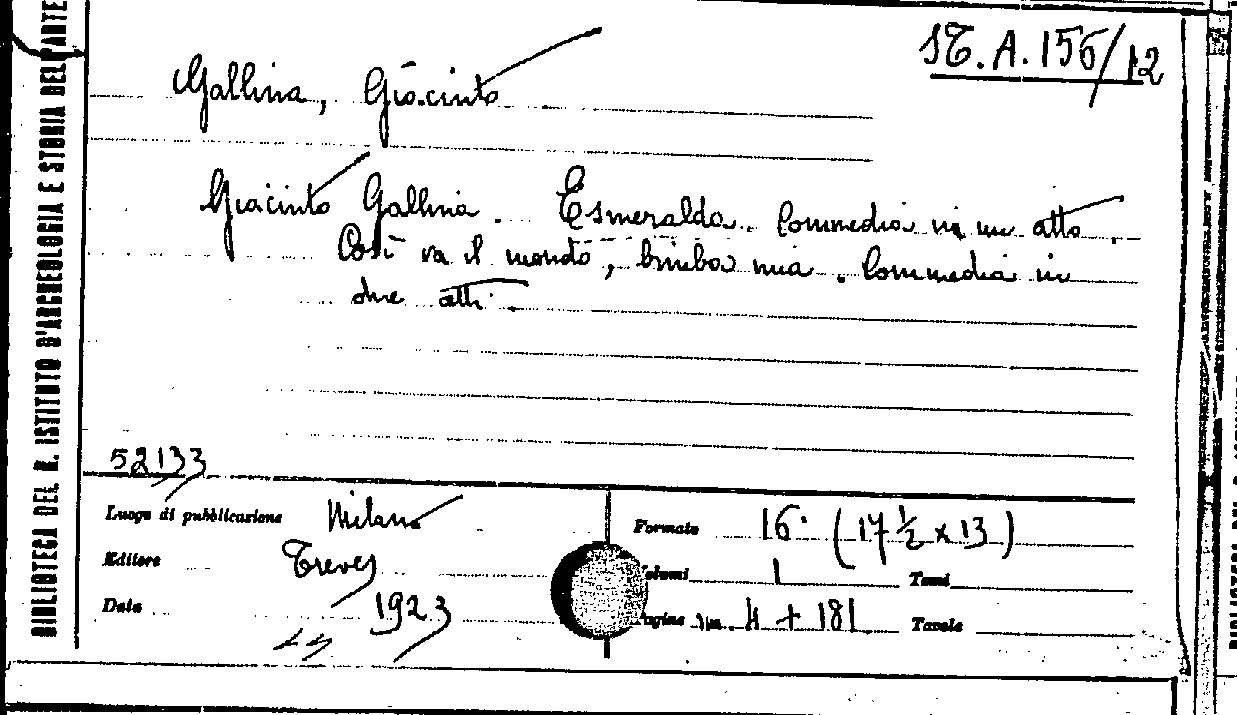 ST. A. 156/12
Gallina, Giacinto
Giacinto Gallina. Esmeralda. Commedia in un atto.
Così va il mondo, bimba mia. Commedia in
due atti.
52133
Luogo di pubblicazione Milano
Editore Treves
Data 1923
Formato 16° (17 ½ x 13)
Volumi 1 Tomi
Pagine 4 + 181 Tavole
BIBLIOTECA DEL R. ISTITUTO D'ARCHEOLOGIA E STORIA DELL'ARTE